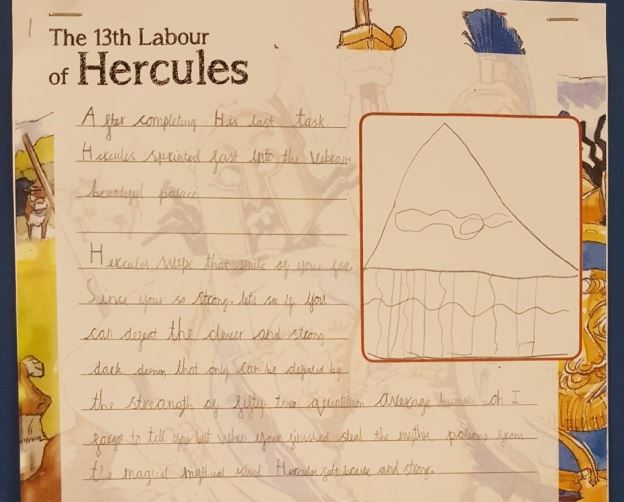 The 13th Labour
of Hercules
After completing His last task
Hercules sprinted fast into the vibrant
beautiful palace
Hercules wipe that smile of your face
Since your so strong. lets see if you
can defeat the clever and strong
dark demon that only can be defeated by
the streangth of fifty two quintillion average humans oh I
forgot to tell you but when your finished steal the mythic potions from
the magical mythical island Hercules felt brave and strong.